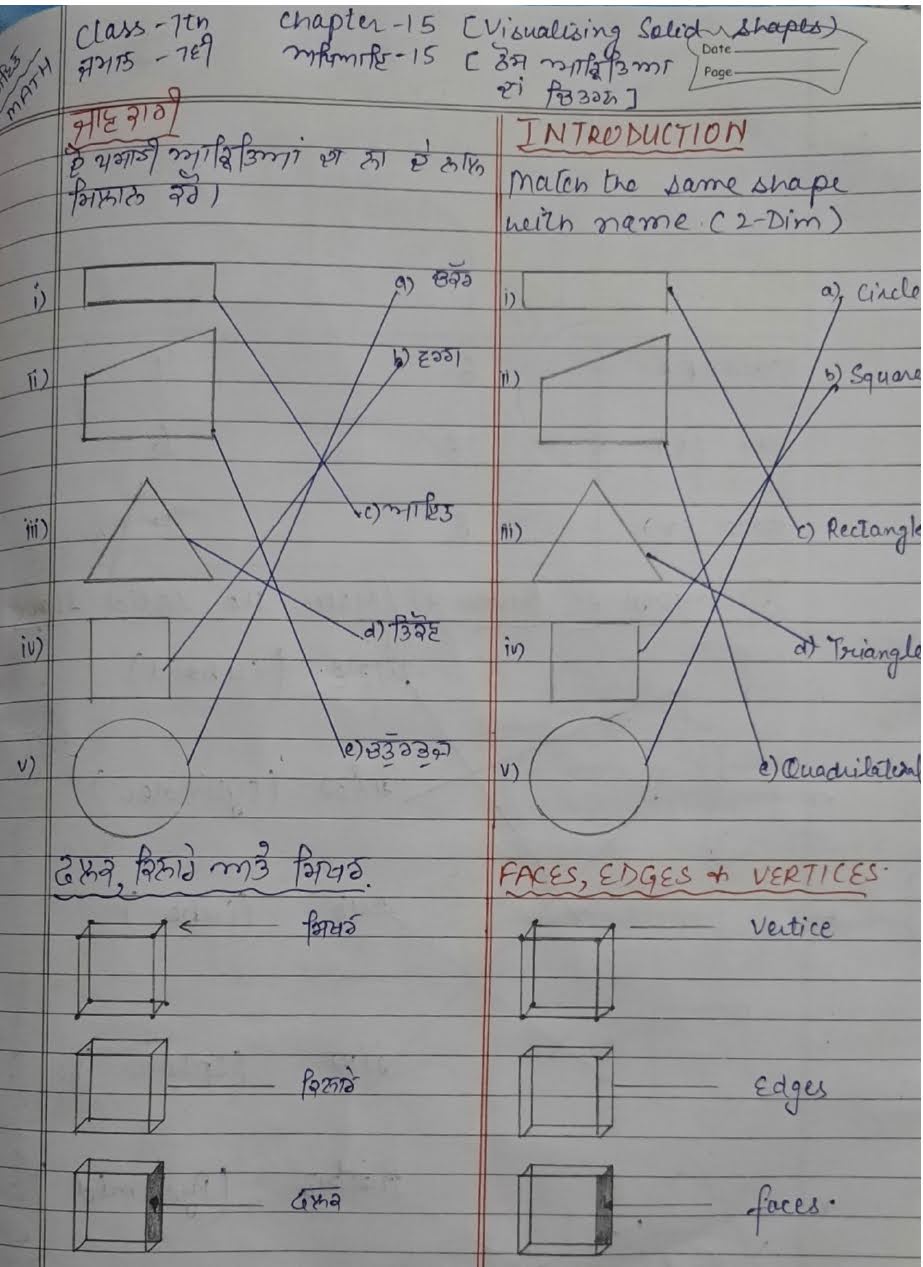 MATH
Class - 7th Chapter - 15 [Visualising Solid shapes)
ਜਮਾਤ - 7ਵੀਂ ਅਧਿਆਇ - 15 [ ਠੋਸ ਆਕ੍ਰਿਤਿਆ
ਦਾਂ ਚਿਤਰਨ ]
Date
Page
ਜਾਣਕਾਰੀ
ਦੋ ਪਸਾਰੀ ਆਕ੍ਰਿਤਿਆਂ ਦਾ ਨਾ ਦੇ ਨਾਲ
ਮਿਲਾਨ ਕਰੋ।
i) a) ਚੱਕਰ
ii) b) ਵਰਗ
iii) c) ਆਇਤ
iv) d) ਤਿਕੋਣ
v) e) ਚਤੁੱਰਭੁਜ
ਫਲਕ, ਕਿਨਾਰੇ ਅਤੇ ਸਿਖਰ
ਸਿਖਰ
ਕਿਨਾਰੇ
ਫਲਕ
INTRODUCTION
Match the same shape
with name. (2-Dim)
i) a) Circle
ii) b) Square
iii) c) Rectangle
iv) d) Triangle
v) e) Quadrilateral
FACES, EDGES & VERTICES.
Vertice
Edges
faces.